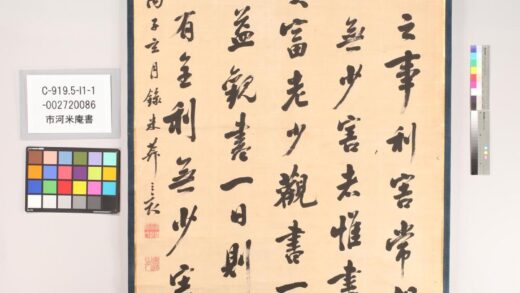 C-919.5-I1-1
-002720086
市河米庵書
之事利害常
無少害者惟書
富老少觀書一
益觀書一日則
有全利無少害
丙子
月錄米葊三亥